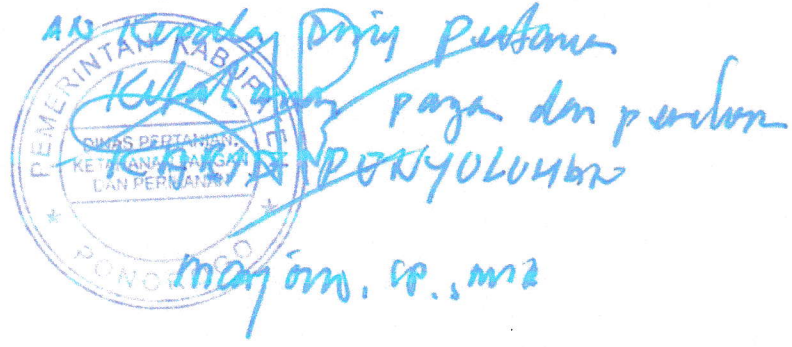 AN Kepala Dinas Pertanian
Ketahanan pangan dan perikanan
KABID PENYULUHAN
PEMERINTAH KABUPATEN
DINAS PERTANIAN,
KETAHANAN PANGAN
DAN PERIKANAN
PONOROGO